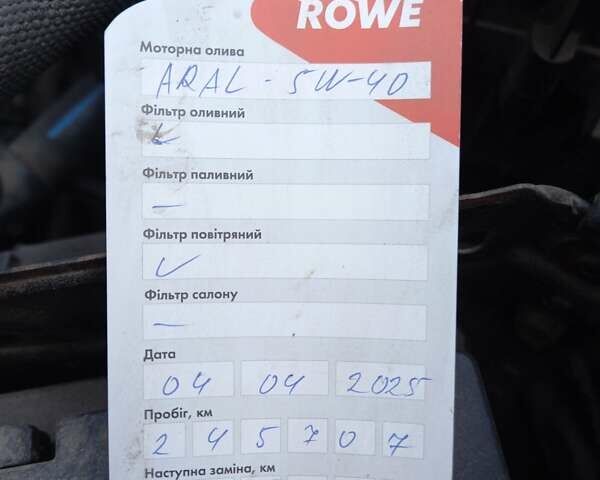 ROWE
Моторна олива
ARAL - 5W-40
Фільтр оливний
✓
Фільтр паливний
—
Фільтр повітряний
✓
Фільтр салону
—
Дата
04 04 2025
Пробіг, км
2 4 5 7 0 7
Наступна заміна, км